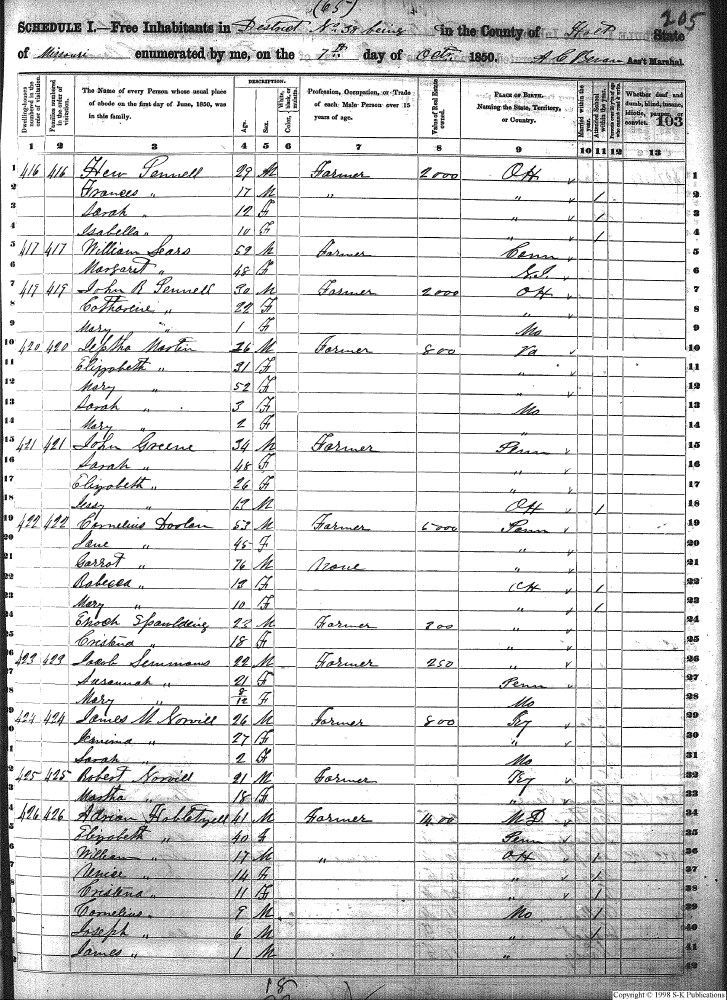 (65)
205
SCHEDULE I.—Free Inhabitants in District No 38 being in the County of Holt State
of Missouri enumerated by me, on the 7th day of Octr 1850. Ass't Marshal.
DESCRIPTION.
Dwelling-houses numbered in the order of visitation.
Families numbered in the order of visitation.
The Name of every Person whose usual place of abode on the first day of June, 1850, was in this family.
Age.
Sex.
Color, White, black, or mulatto.
Profession, Occupation, or Trade of each Male Person over 15 years of age.
Value of Real Estate owned.
PLACE OF BIRTH. Naming the State, Territory, or Country.
Married within the year.
Attended School within the year.
Whether deaf and dumb, blind, insane, idiotic, pauper, or convict.
103
1 2 3 4 5 6 7 8 9 10 11 12 13
1 416 416 Hew Pennell 29 M Farmer 2000 OH 1
2 Frances " 17 M " " 1 2
3 Sarah " 12 F " 1 3
4 Isabella " 10 F " 1 4
5 417 417 William Sears 59 M Farmer Conn 5
6 Margaret " 48 F 6
7 419 419 John B Pennell 30 M Farmer 2000 OH 7
8 Catharine " 22 F " 8
9 Mary " 1 F Mo 9
10 420 420 Jeptha Martin 36 M Farmer 800 Va 10
11 Elizabeth " 31 F " 11
12 Mary " 52 F " 12
13 Sarah " 3 F Mo 13
14 Mary " 2 F " 14
15 421 421 John Greene 34 M Farmer Penn 15
16 Sarah " 48 F " 16
17 Elizabeth " 26 F " 17
18 Jessy " 13 M OH 1 18
19 422 422 Cornelius Doolan 53 M Farmer 5000 Penn 19
20 Jane " 45 F " 20
21 Garrot " 76 M None " 21
22 Rabecca " 13 F OH 1 22
23 Mary " 10 F " 1 23
24 Enoch Spawlding 23 M Farmer 200 " 24
25 Cristena " 18 F " 25
26 423 423 Jacob Semmons 22 M Farmer 250 " 26
27 Susannah " 21 F Penn 27
28 Mary " 8/12 F Mo 28
29 424 424 James M Norvill 26 M Farmer 800 Ky 29
30 Jemima " 27 F " 30
31 Sarah " 2 F Mo 31
32 425 425 Robert Norvill 21 M Farmer Ky 32
33 Martha " 18 F " 33
34 426 426 Adrian Hobletzell 41 M Farmer 1400 M.D. 34
35 Elizabeth " 40 F Penn 35
36 William " 17 M " OH 1 36
37 14 F " 1 37
38 Cristena " 11 F " 1 38
39 Cornelius " 9 M Mo 1 39
40 Joseph " 6 M " 1 40
41 James " 1 M " 41
42
18
Copyright © 1998 S-K Publications